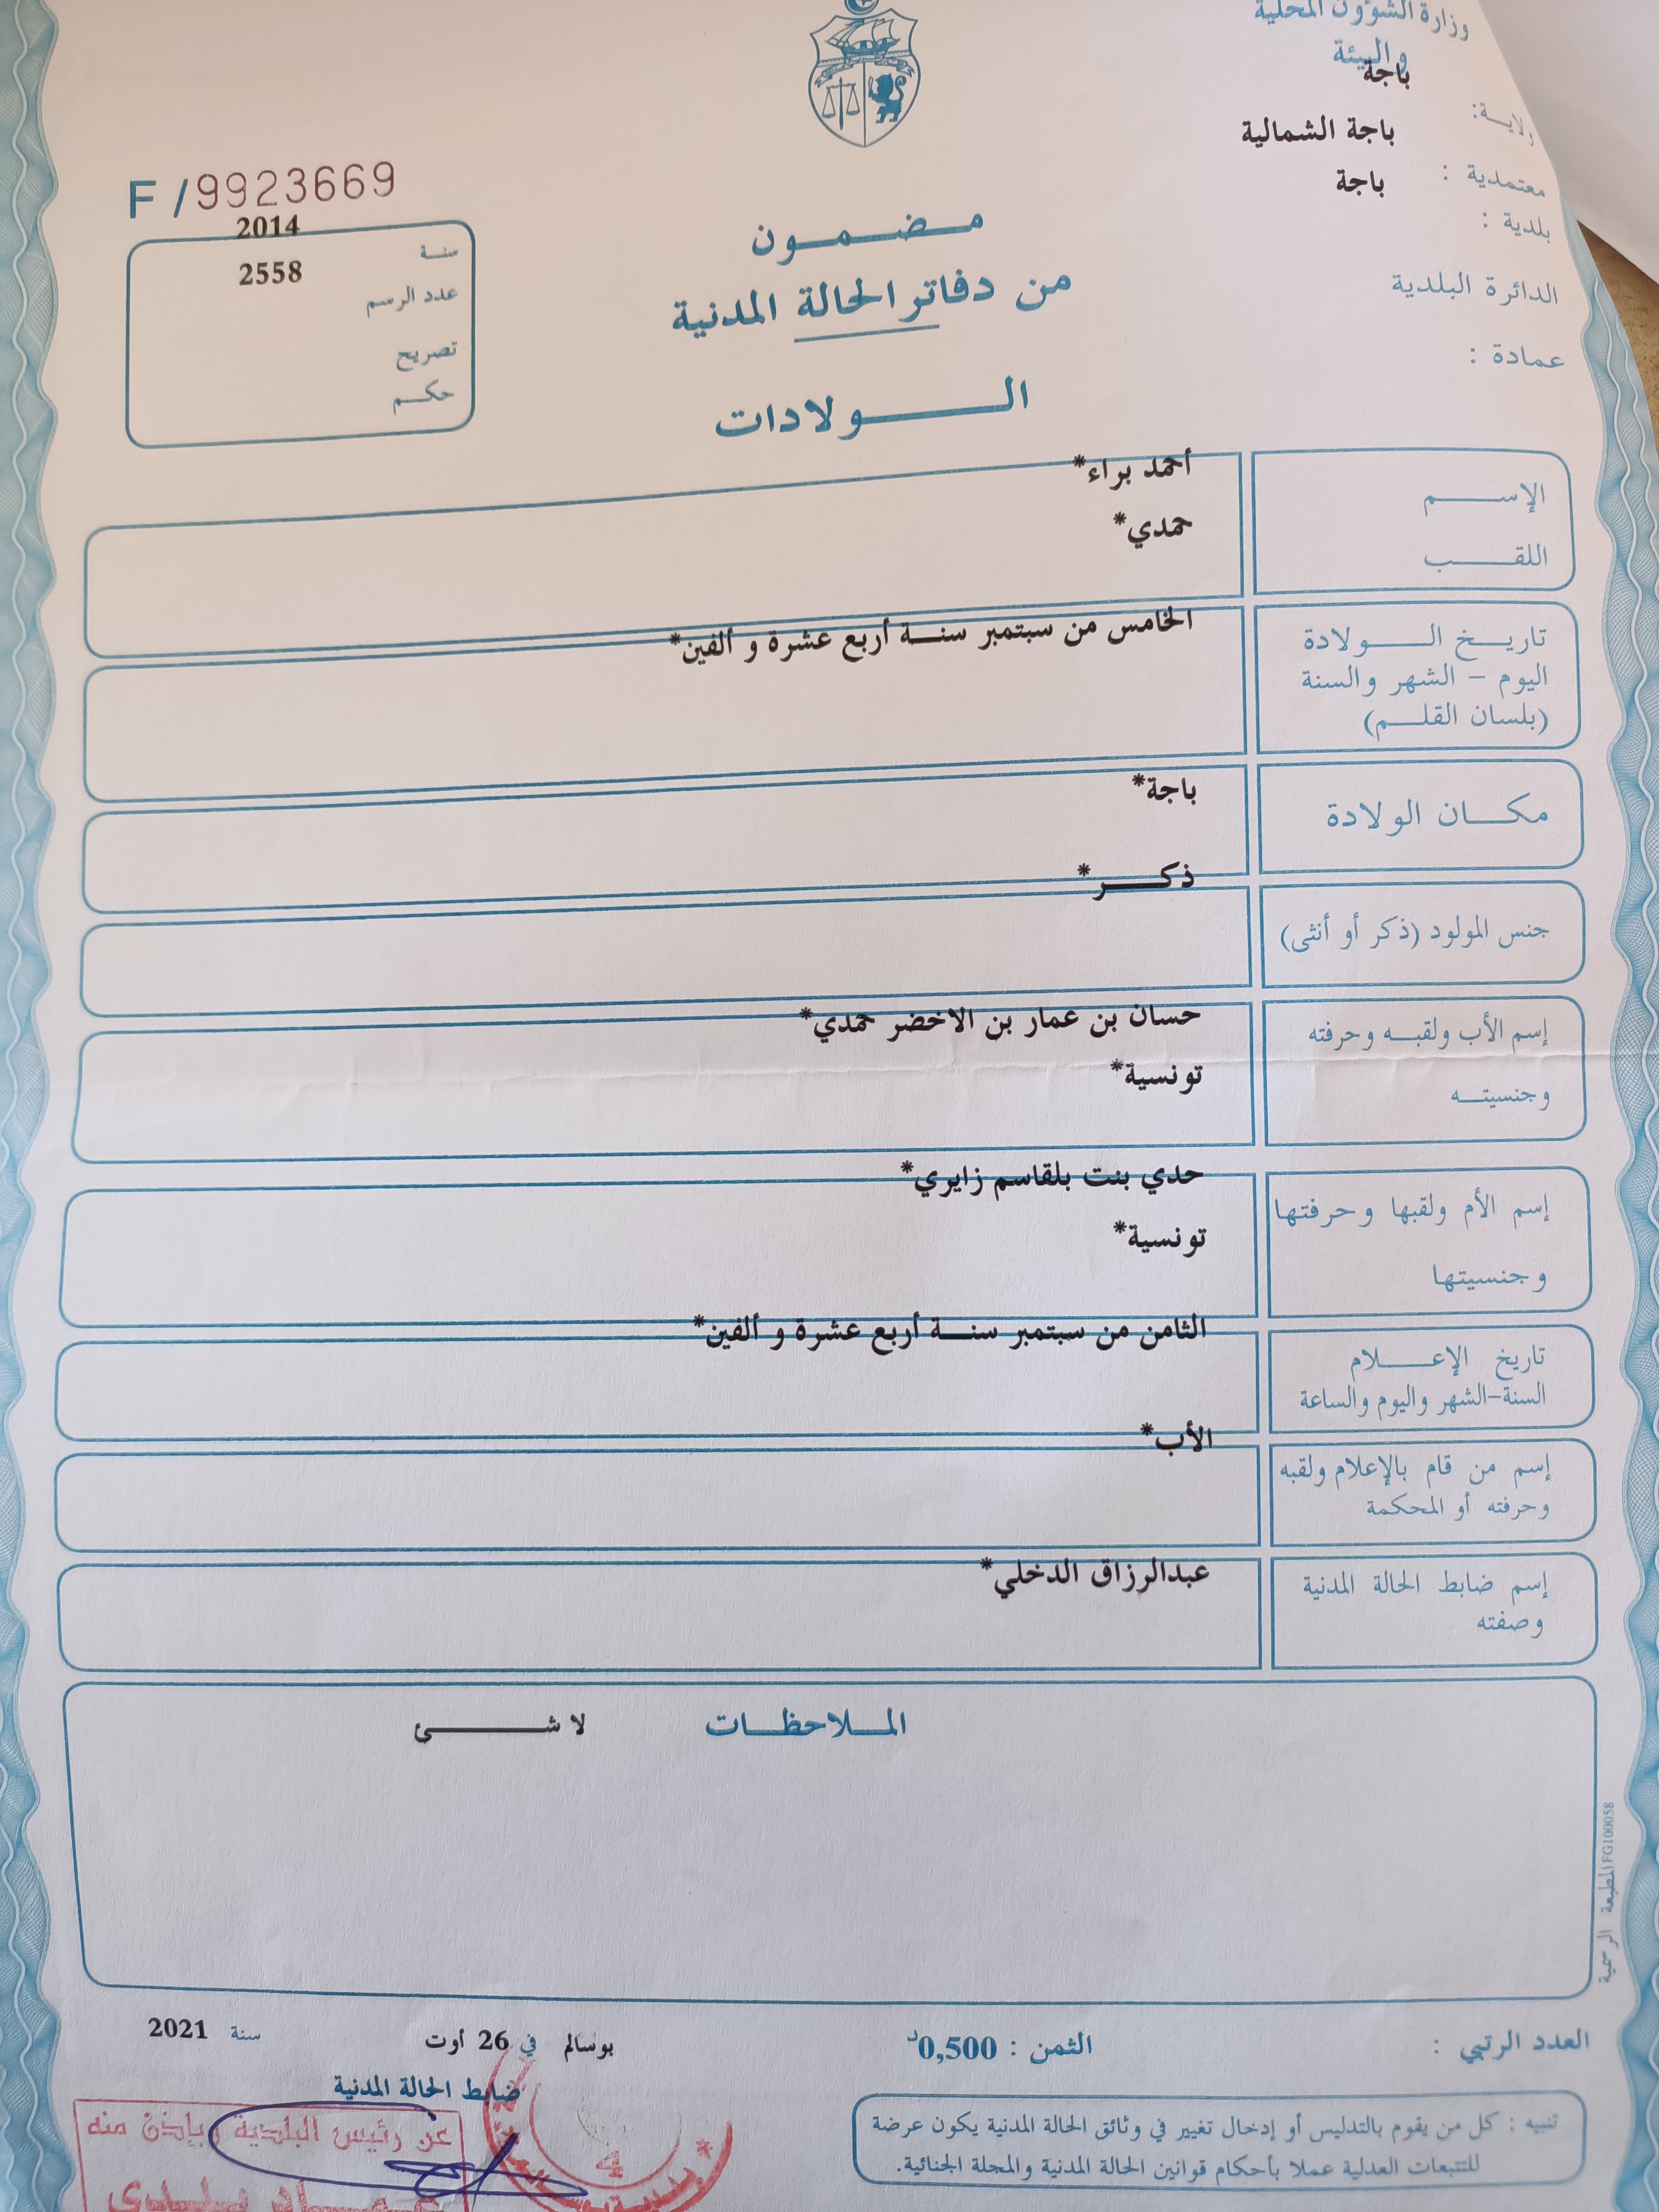 وزارة الشؤون المحلية
والبيئة
ولاية: باجة
معتمدية : باجة الشمالية
بلدية : باجة
الدائرة البلدية
عمادة :
F / 9923669
سنة 2014
عدد الرسم 2558
تصريح
حكم
مضمون
من دفاتر الحالة المدنية
الولادات
الإسم أحمد براء*
اللقب حمدي*
تاريخ الولادة الخامس من سبتمبر سنة أربع عشرة و ألفين*
اليوم - الشهر والسنة
(بلسان القلم)
مكان الولادة باجة*
جنس المولود (ذكر أو أنثى) ذكر*
إسم الأب ولقبه وحرفته حسان بن عمار بن الاخضر حمدي*
وجنسيته تونسية*
إسم الأم ولقبها وحرفتها حدي بنت بلقاسم زايري*
وجنسيتها تونسية*
تاريخ الإعلام الثامن من سبتمبر سنة أربع عشرة و ألفين*
السنة-الشهر واليوم والساعة
إسم من قام بالإعلام ولقبه الأب*
وحرفته أو المحكمة
إسم ضابط الحالة المدنية عبدالرزاق الدخلي*
وصفته
الملاحظات لا شئ
المطبعة الرسمية FG100058
العدد الرتبي :
الثمن : 0,500د
بوسالم في 26 أوت سنة 2021
ضابط الحالة المدنية
عن رئيس البلدية وبإذن منه
4
تنبيه : كل من يقوم بالتدليس أو إدخال تغيير في وثائق الحالة المدنية يكون عرضة
للتتبعات العدلية عملا بأحكام قوانين الحالة المدنية والمجلة الجنائية.